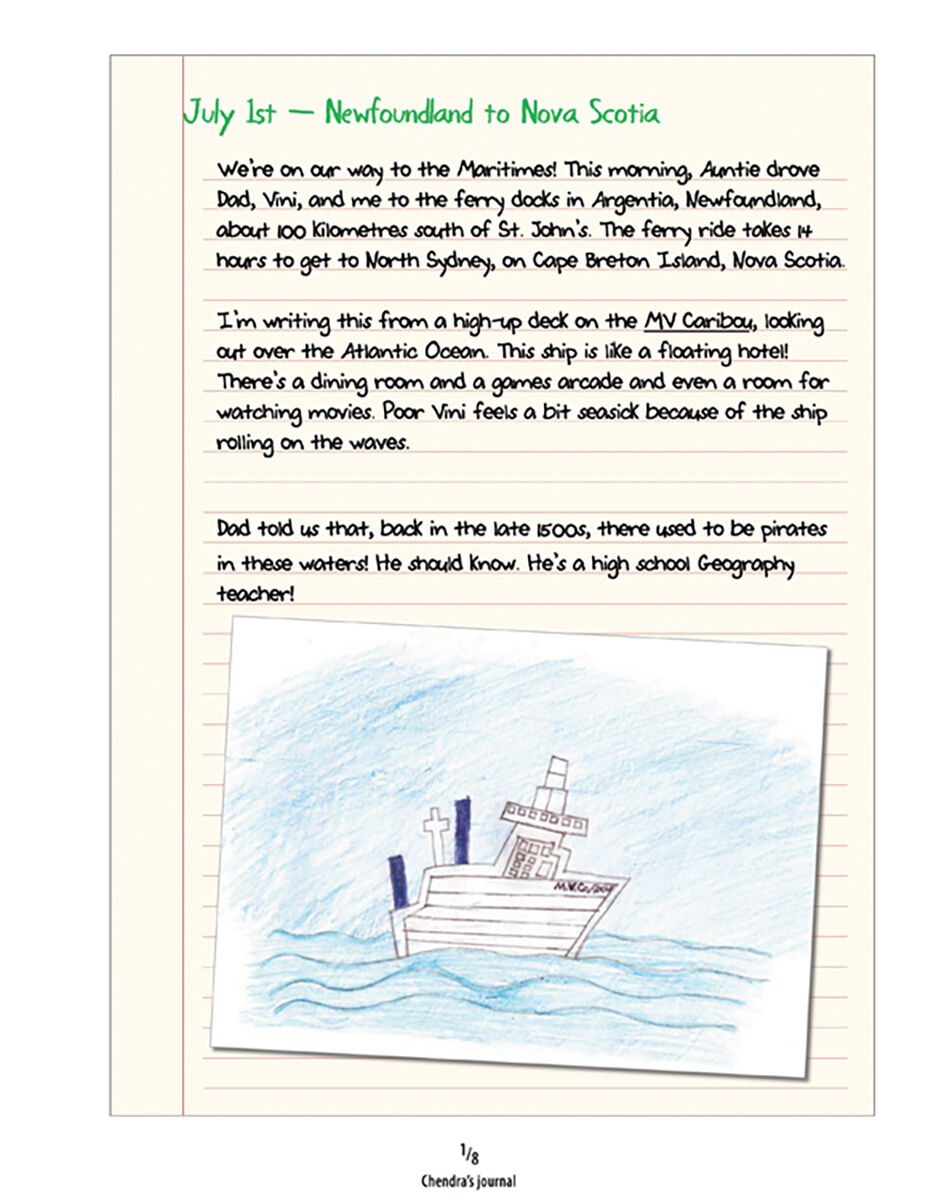 July 1st — Newfoundland to Nova Scotia
We're on our way to the Maritimes! This morning, Auntie drove
Dad, Vini, and me to the ferry docks in Argentia, Newfoundland,
about 100 kilometres south of St. John's. The ferry ride takes 14
hours to get to North Sydney, on Cape Breton Island, Nova Scotia.
I'm writing this from a high-up deck on the MV Caribou, looking
out over the Atlantic Ocean. This ship is like a floating hotel!
There's a dining room and a games arcade and even a room for
watching movies. Poor Vini feels a bit seasick because of the ship
rolling on the waves.
Dad told us that, back in the late 1500s, there used to be pirates
in these waters! He should know. He's a high school Geography
teacher!
1/8
Chendra's journal